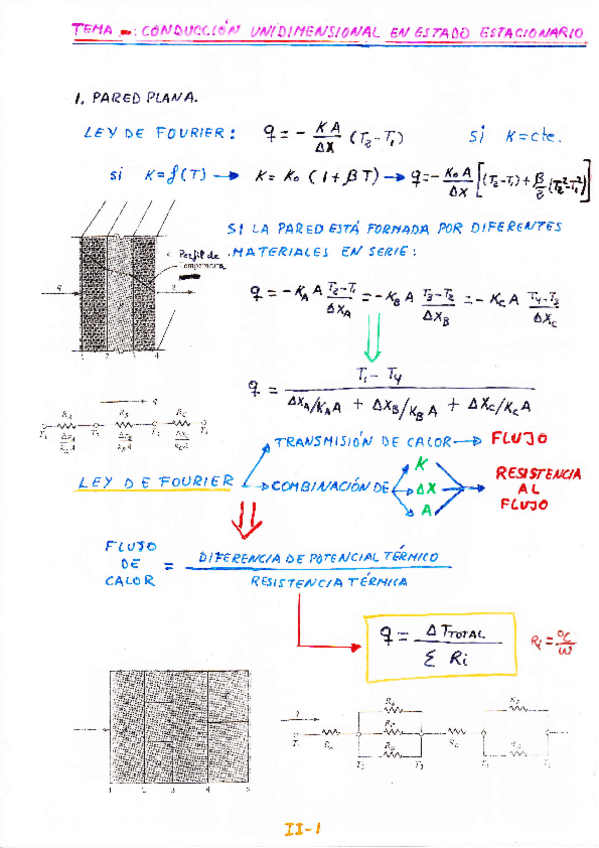 TEMA -: CONDUCCIÓN UNIDIMENSIONAL EN ESTADO ESTACIONARIO
1. PARED PLANA.
LEY DE FOURIER: q = - KA/ΔX (T₂-T₁) si K=cte.
si K=f(T) → K = K₀ (1+βT) → q=- K₀A/ΔX [(T₂-T₁)+ β/2 (T₂²-T₁²)]
SI LA PARED ESTÁ FORMADA POR DIFERENTES
MATERIALES EN SERIE:
Perfil de
temperatura
q
q
1 2 3 4
q = - K_A A T₂-T₁/ΔX_A = - K_B A T₃-T₂/ΔX_B = - K_C A T₄-T₃/ΔX_C
q = T₁ - T₄ / ΔX_A/K_A A + ΔX_B/K_B A + ΔX_C/K_C A
q
R_A R_B R_C
T₁ T₂ T₃ T₄
TRANSMISIÓN DE CALOR → FLUJO
LEY DE FOURIER
COMBINACIÓN DE
K
ΔX
A
RESISTENCIA
AL
FLUJO
FLUJO
DE
CALOR
=
DIFERENCIA DE POTENCIAL TÉRMICO
RESISTENCIA TÉRMICA
q = ΔT_TOTAL / Σ Ri
Ri = °C/W
1 2 3 4 5
q
T₁
T₂ T₃
II-1